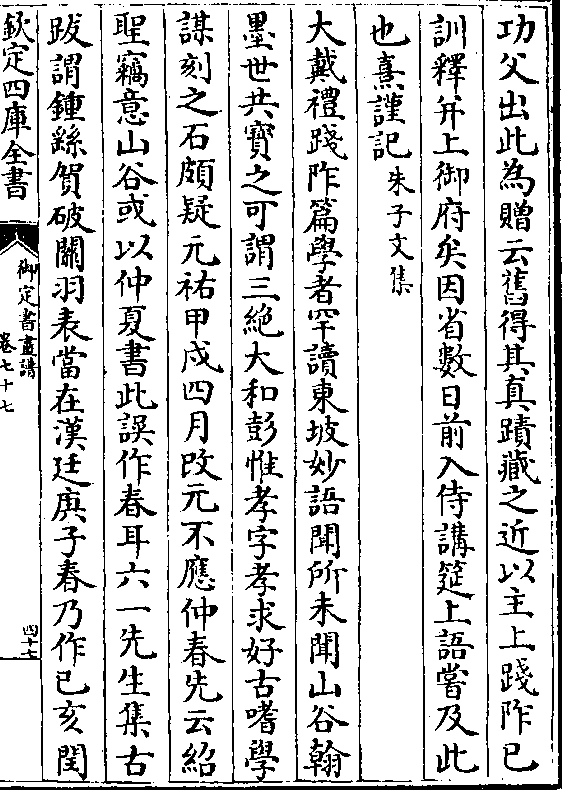 功父出此為贈云舊得其真蹟藏之近以主上踐阼已
訓釋并上御府矣因省數日前入侍講筵上語嘗及此
也熹謹記朱子文集
大戴禮踐阼篇學者罕讀東坡妙語聞所未聞山谷翰
墨世共寶之可謂三絶大和彭惟孝字孝求好古嗜學
謀刻之石頗疑元祐甲戌四月改元不應仲春先云紹
聖竊意山谷或以仲夏書此誤作春耳六一先生集古
跋謂鍾繇賀破關羽表當在漢廷庚子春乃作已亥閏
欽定四庫全書
御定書畫譜
卷七十七
四十七